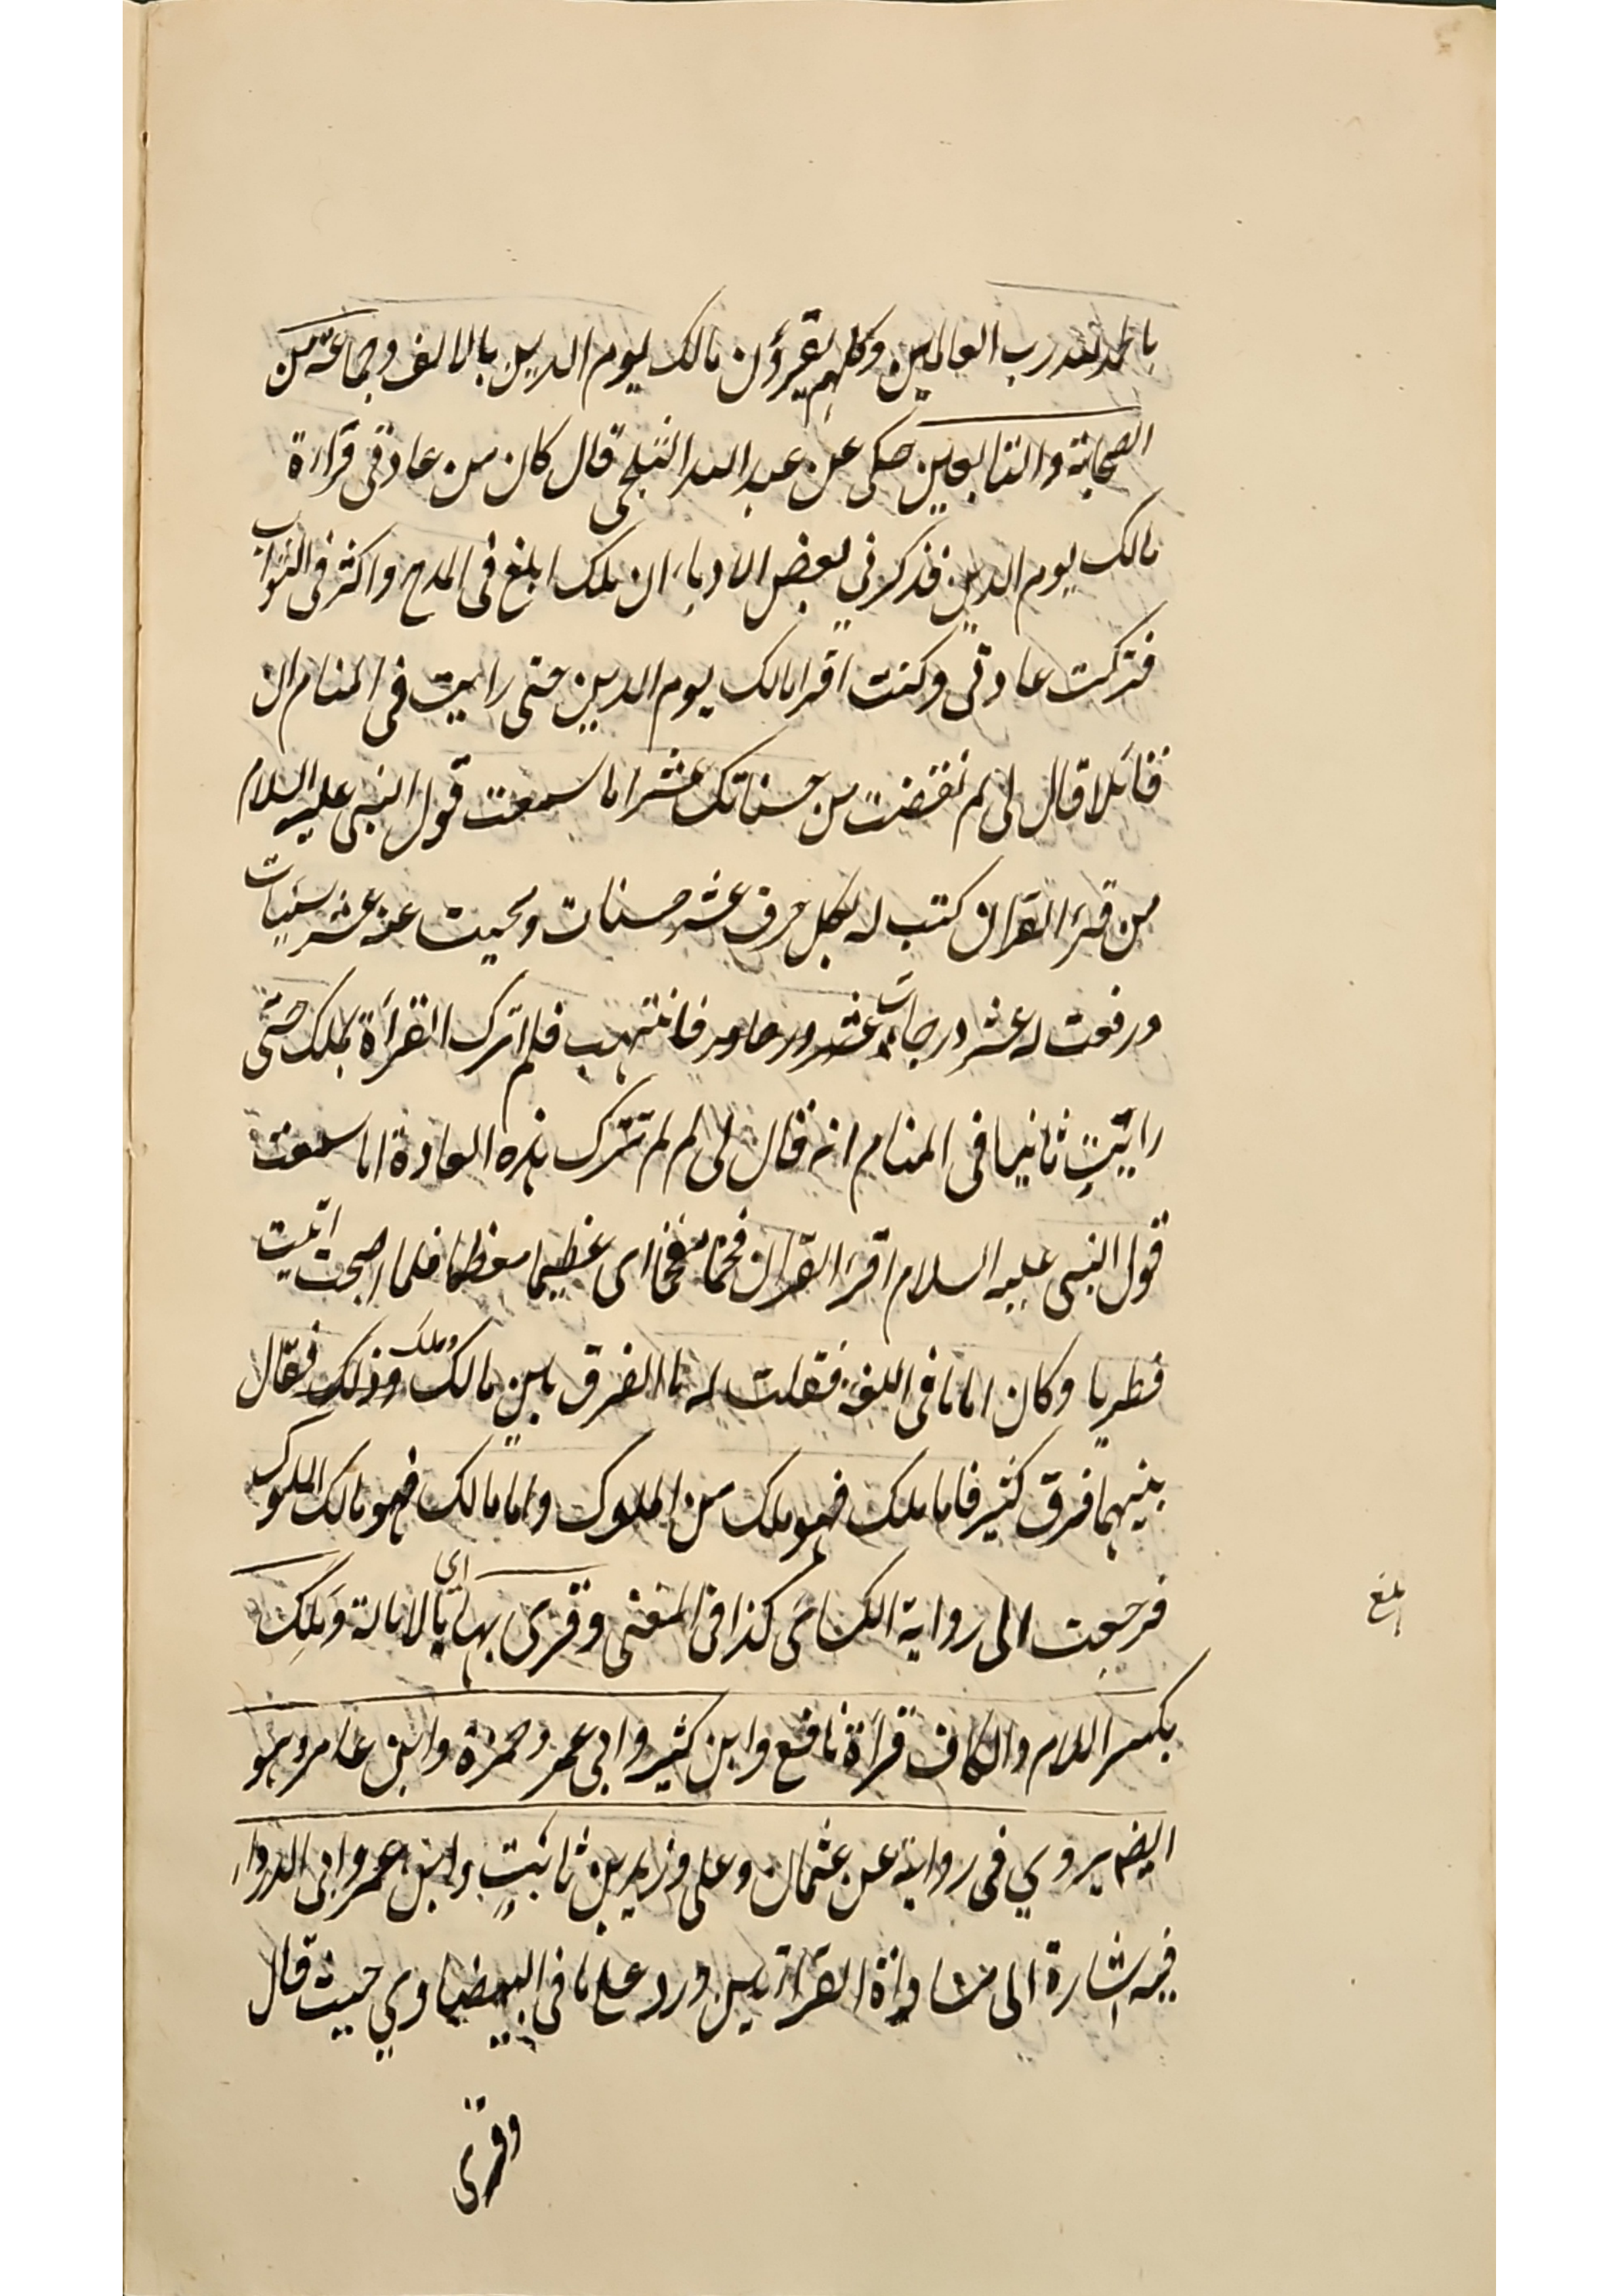 بالحمد لله رب العالمين وكلهم يقرؤن مالك يوم الدين بالالف وجماعة من
الصحابة والتابعين حكى عن عبد الله الثلجى قال كان من عادتى قراءة
مالك يوم الدين فذكرني بعض الادباء ان ملك ابلغ فى المدح واكثر فى الثواب
فتركت عادتى وكنت اقرا مالك يوم الدين حتى رايت فى المنام ان
قائلا قال لى لم نقضت من حسناتك عشرا اما سمعت قول النبى عليه السلام
من قرء القران كتب له بكل حرف عشر حسنات ومحيت عنه عشر سيئات
ورفعت له عشر درجات فانتبهت فلم اترك القرأة بملك حتى
رايت ثانيا فى المنام انه قال لى لم لم تترك هذه العادة اما سمعت
قول النبى عليه السلام اقرء القران فخما مفخما اى عظيما معظما فلما اصبحت اتيت
قطربا وكان اماما فى اللغة فقلت له ما الفرق بين مالك وملك وذلك فقال
بينهما فرق كثير فاما ملك فهو ملك من الملوك واما مالك فهو مالك الملوك
فرجعت الى رواية الكسائى كذا فى المغنى وقرى بها اى بالامالة وملك
بكسر اللام والكاف قرأة نافع وابن كثير وابى عمر وحمزة وابن عامر وهو
ايضم يروي فى رواية عن عثمان وعلى وزيد بن ثابت وابن عمر وابى الدرداء
فيه اشارة الى مساواة القراتين ورد على ما فى البيضاوي حيث قال
وقرى
بلغ